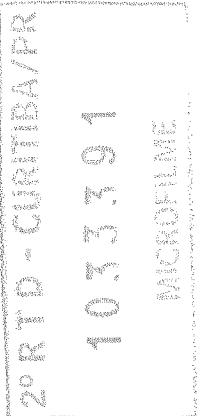 2º R T D - CURITIBA/PR
1033391
MICROFILME